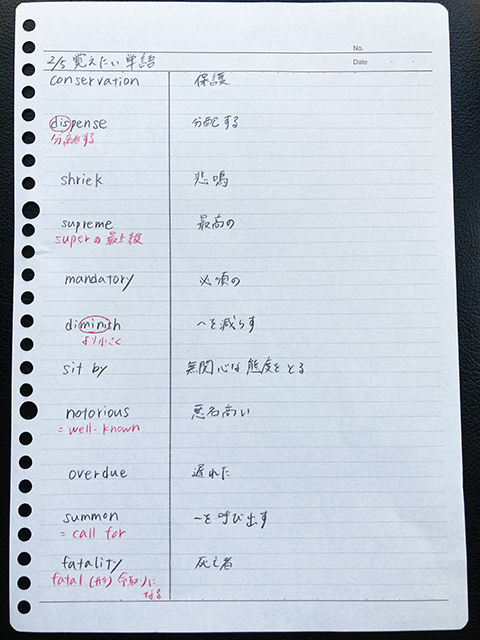 No.
Date
2/5 覚えたい単語
conservation 保護
dispense 分配する
分離する
shriek 悲鳴
supreme 最高の
superの最上級
mandatory 必須の
diminish 〜を減らす
より小さく
sit by 無関心な態度をとる
notorious 悪名高い
= well-known
overdue 遅れた
summon 〜を呼び出す
= call for
fatality 死亡者
fatal (形) 命取りに
なる